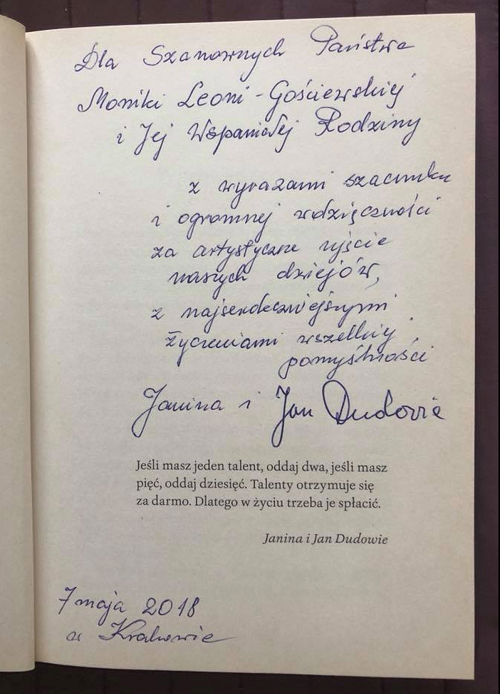 Dla Szanownych Państwa
Moniki Leoni-Gościewskiej
i Jej Wspaniałej Rodziny
z wyrazami szacunku
i ogromnej wdzięczności
za artystyczne ujęcie
naszych dziejów,
z najserdeczniejszymi
życzeniami wszelkiej
pomyślności
Janina i Jan Dudowie
Jeśli masz jeden talent, oddaj dwa, jeśli masz
pięć, oddaj dziesięć. Talenty otrzymuje się
za darmo. Dlatego w życiu trzeba je spłacić.
Janina i Jan Dudowie
7 maja 2018
w Krakowie